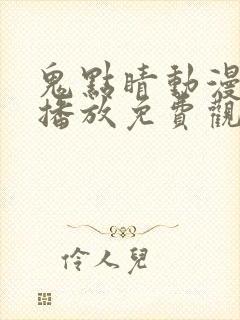 鬼點晴動漫
播放免費觀
伶人兒